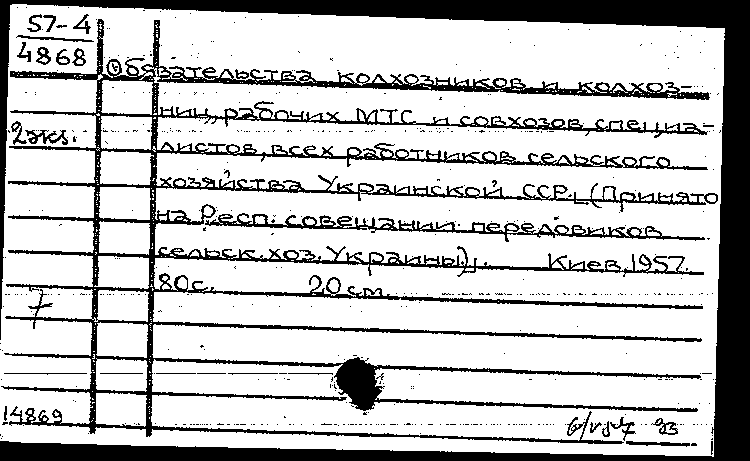 57-4
4868
Обязательства колхозников и колхоз-
ниц, рабочих МТС и совхозов, специа-
2экз.
листов, всех работников сельского
хозяйства Украинской ССР. (Принято
на Респ. совещании передовиков
сельск. хоз. Украины). Киев, 1957.
80с. 20 см.
7
14869